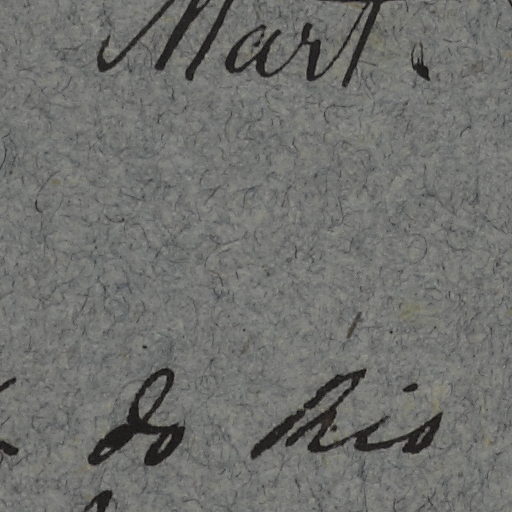 Mart.
do his